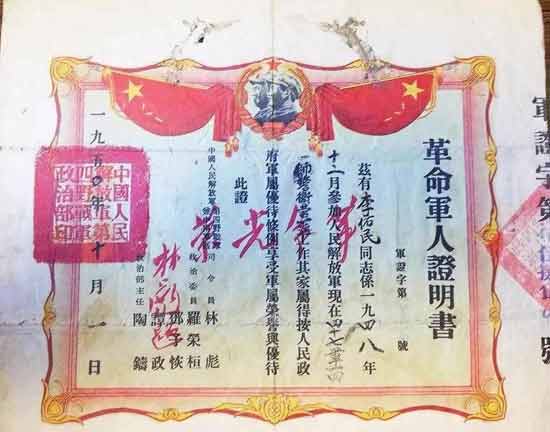 軍證字第
號
革命軍人證明書
軍證字第 號
茲有李佑民同志係一九四八年
十二月參加人民解放軍現在四十七軍一四
一師警衛營工作其家屬得按人民政
府軍屬優待條例享受軍屬榮譽與優待
此證
光榮
中國人民解放軍第四野戰軍
司令員 林彪
政治委員 羅榮桓
鄧子恢
譚政
政治部主任 陶鑄
一九五〇年十月一日
中國人民
解放軍第
四野戰軍
政治部印